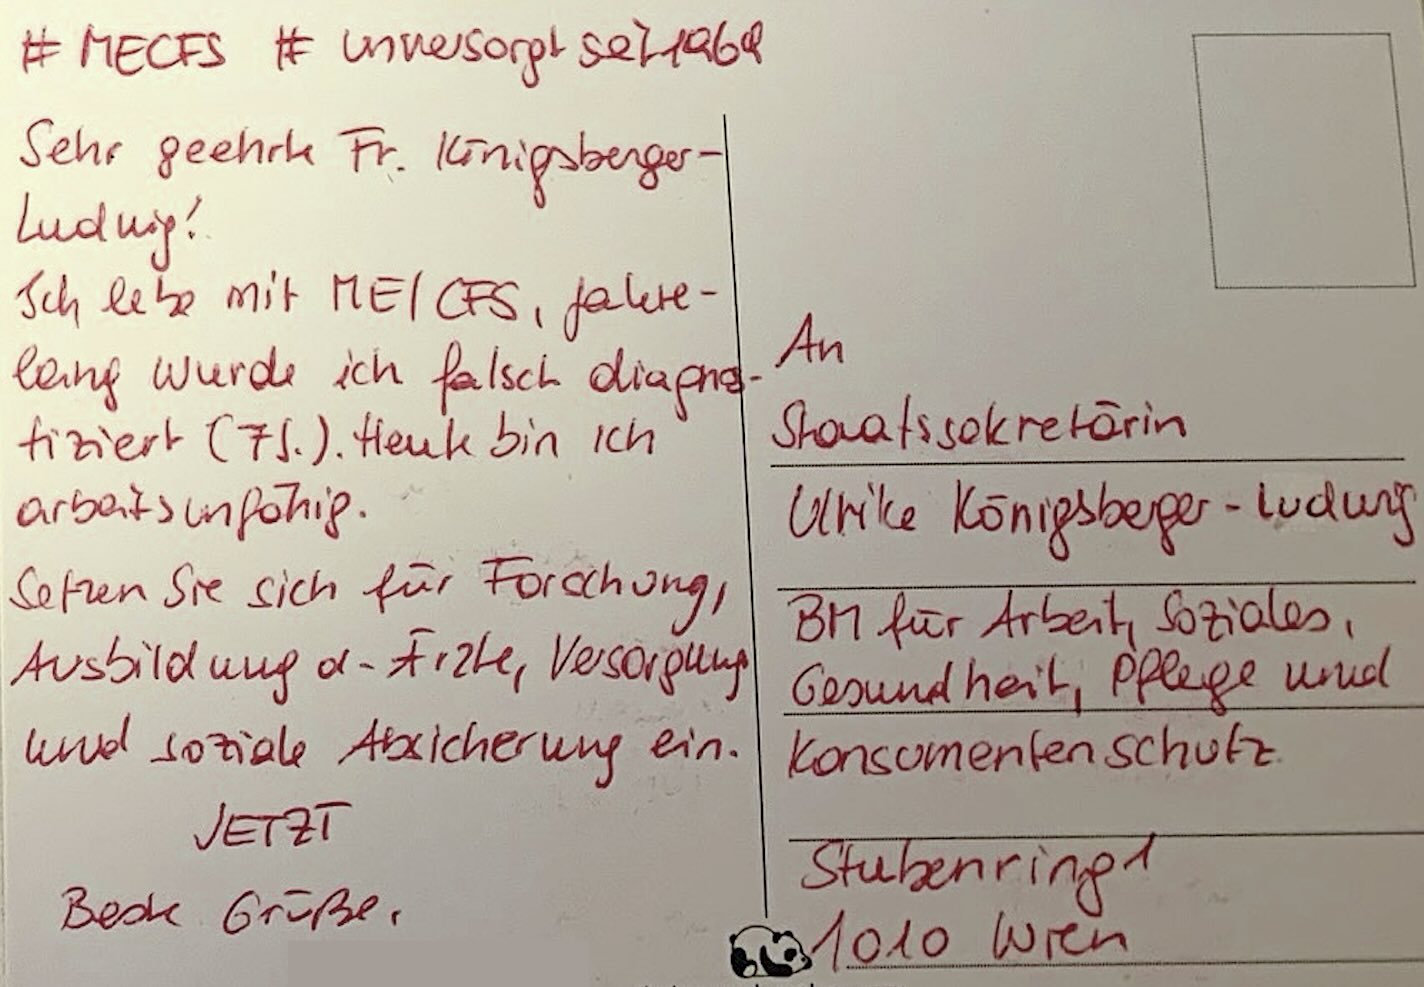 # MECFS # unversorgt seit 1969
Sehr geehrte Fr. Königsberger-
Ludwig!
Ich lebe mit ME/CFS, jahre-
lang wurde ich falsch diagnos-
tiziert (7J.). Heute bin ich
arbeitsunfähig.
Setzen Sie sich für Forschung,
Ausbildung d. Ärzte, Versorgung
und soziale Absicherung ein.
JETZT
Beste Grüße,
An
Staatssekretärin
Ulrike Königsberger-Ludwig
BM für Arbeit, Soziales,
Gesundheit, Pflege und
Konsumentenschutz
Stubenring 1
1010 Wien